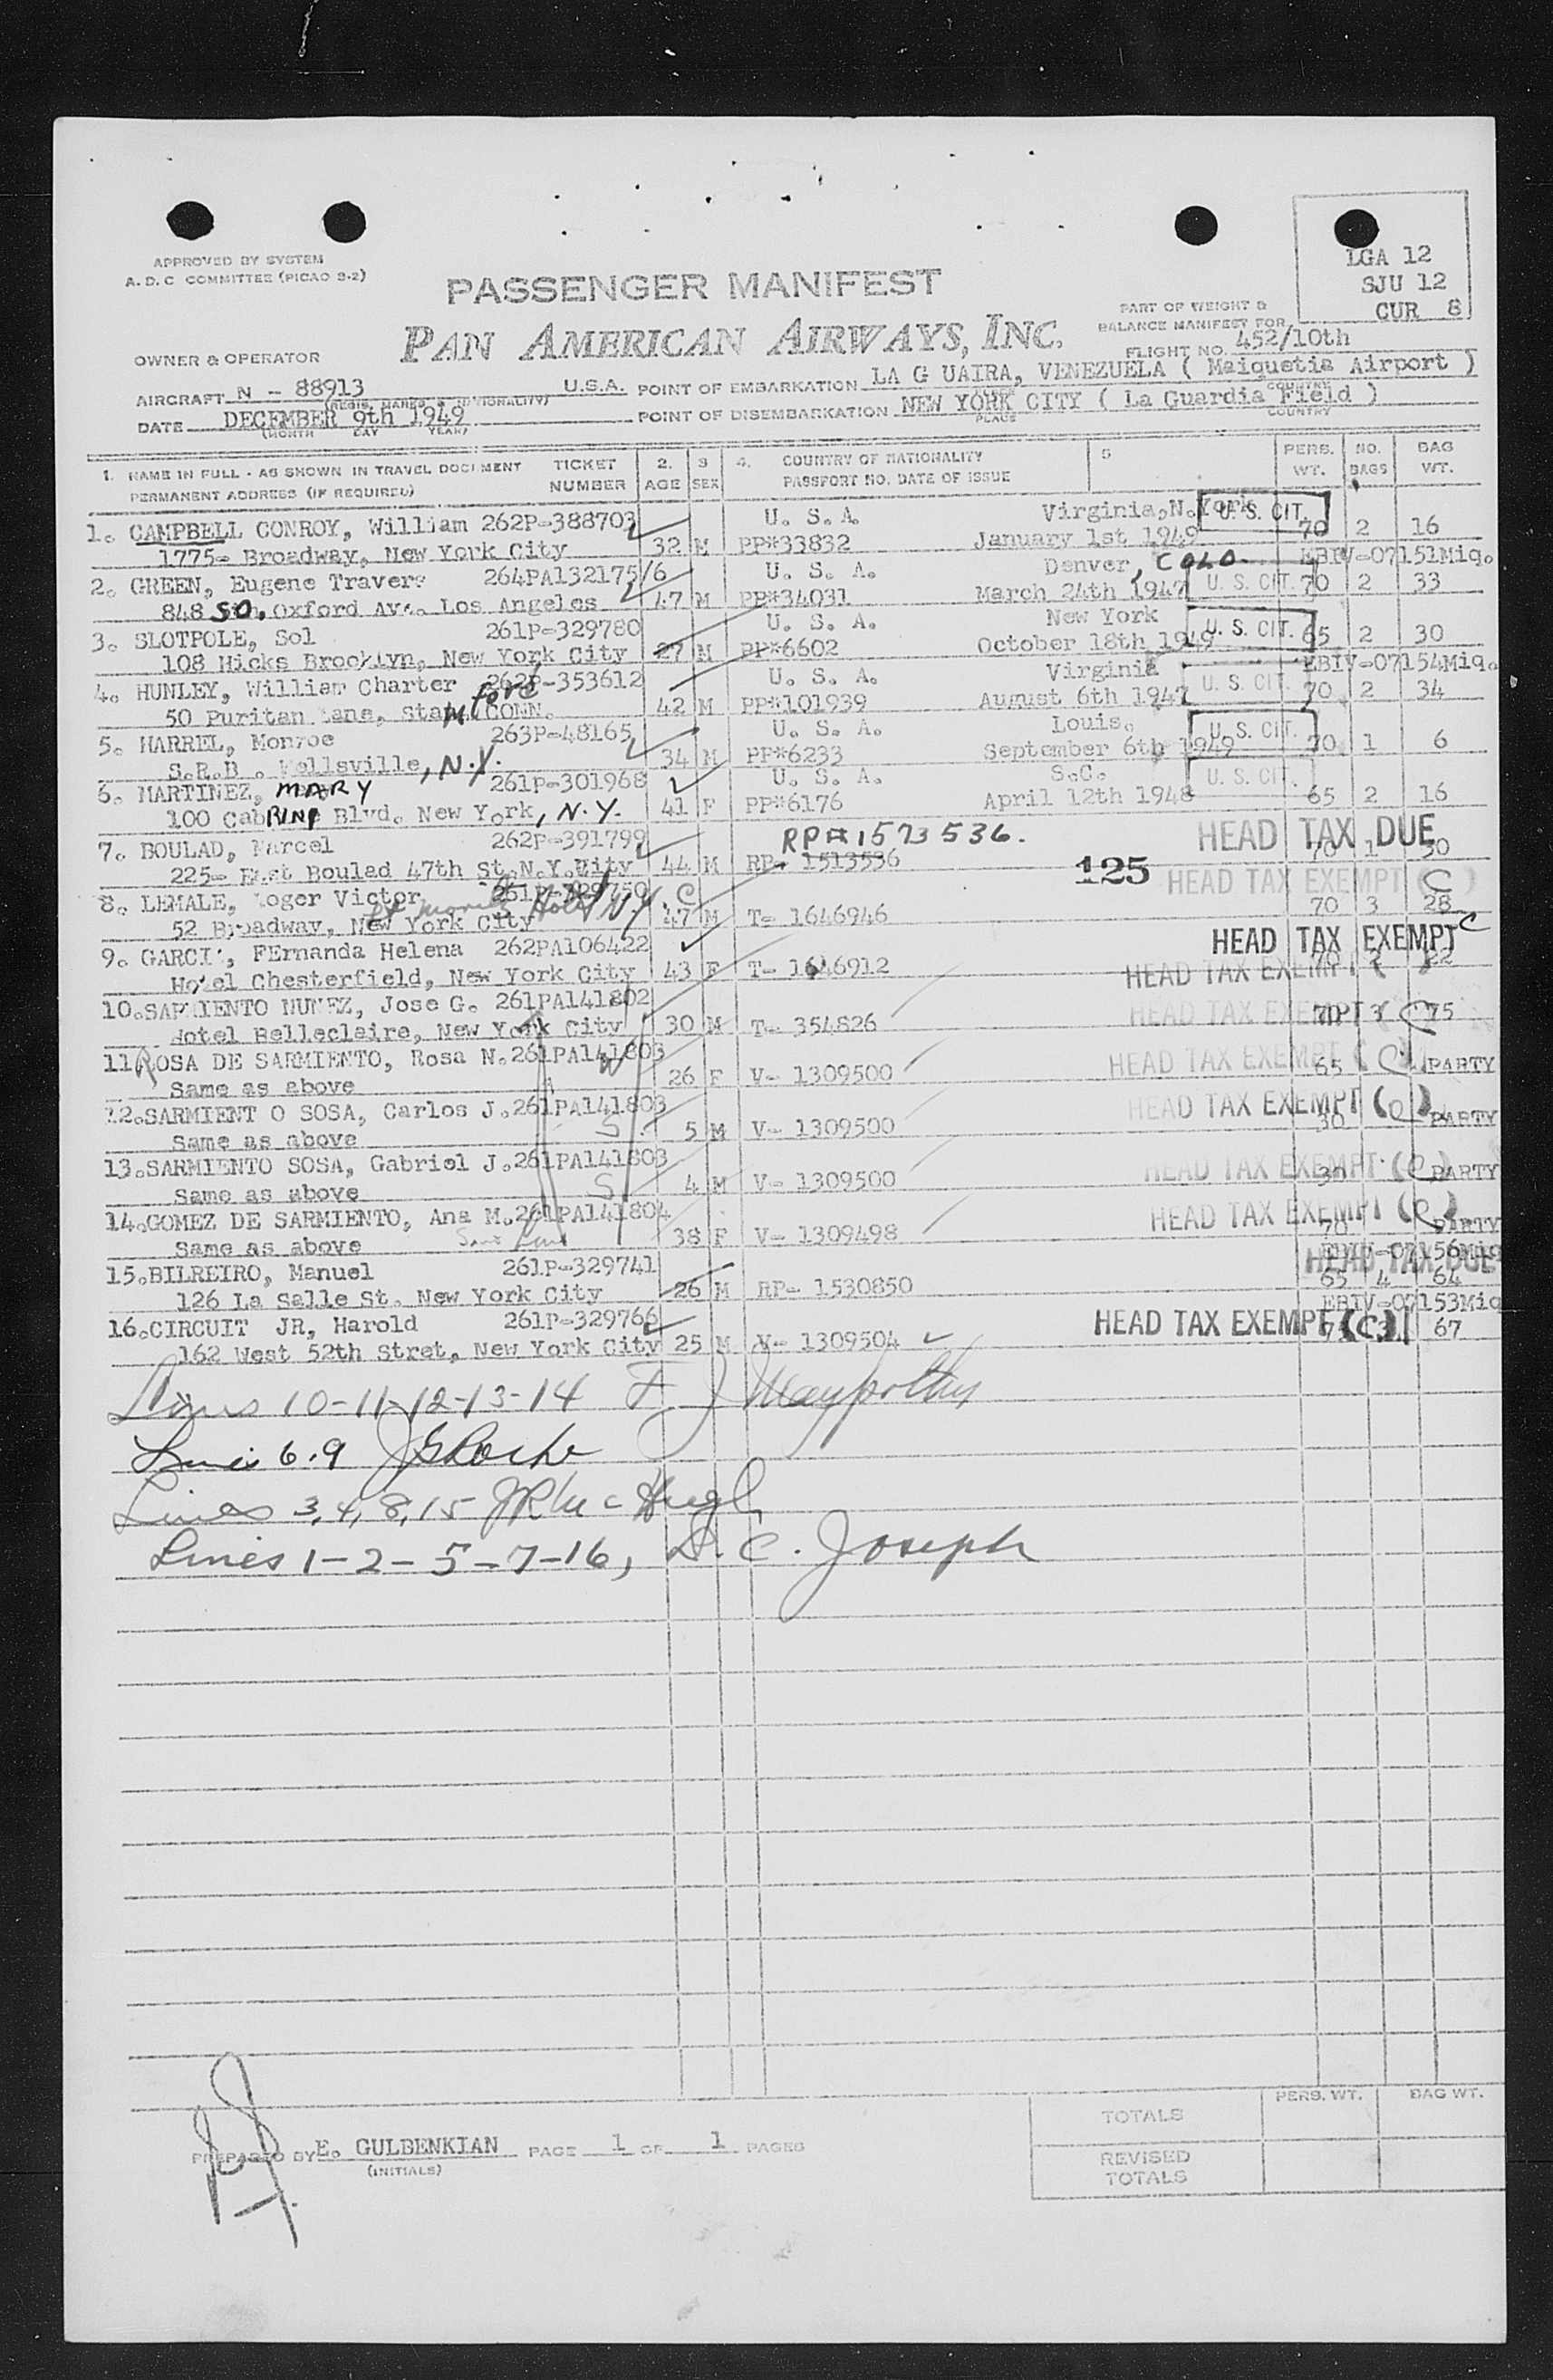 APPROVED BY SYSTEM
A.D.C COMMITTEE (PICAO S-2)
LGA 12
SJU 12
CUR 8
PASSENGER MANIFEST
PART OF WEIGHT &
BALANCE MANIFEST FOR
PAN AMERICAN AIRWAYS, INC.
FLIGHT NO. 452/10th
OWNER & OPERATOR
AIRCRAFT N - 88913 U.S.A. POINT OF EMBARKATION LA G UAIRA, VENEZUELA ( Maiquetia Airport )
DATE DECEMBER 9th 1949 POINT OF DISEMBARKATION NEW YORK CITY ( La Guardia Field )
(MONTH DAY YEAR) PLACE COUNTRY
1. NAME IN FULL - AS SHOWN IN TRAVEL DOCUMENT TICKET 2. 3 4. COUNTRY OF NATIONALITY 5 PERS. NO. BAG
PERMANENT ADDRESS (IF REQUIRED) NUMBER AGE SEX PASSPORT NO. DATE OF ISSUE WT. BAGS WT.
1. CAMPBELL CONROY, William 262P-388703 U. S. A. Virginia, N. York U. S. CIT.
1775- Broadway, New York City 32 M PP#33832 January 1st 1949 70 2 16
2. GREEN, Eugene Travers 264PA132175/6 U. S. A. Denver, COLO. EBIV-07151Miq.
848 SO. Oxford Ave. Los Angeles 47 M PP#34031 March 24th 1947 U. S. CIT. 70 2 33
3. SLOTPOLE, Sol 261P-329780 U. S. A. New York
108 Hicks Brooklyn, New York City 27 M PP#6602 October 18th 1949 U. S. CIT. 65 2 30
4. HUNLEY, William Charter 262P-353612 U. S. A. Virginia EBIV-07154Miq.
50 Puritan Lane, Stamford CONN. 42 M PP#101939 August 6th 1947 U. S. CIT. 70 2 34
5. HARREL, Monroe 263P-48165 U. S. A. Louis.
S.R.B . Wellsville, N.Y. 34 M PP#6233 September 6th 1949 U. S. CIT. 70 1 6
6. MARTINEZ, MARY 261P-301968 U. S. A. S.C.
100 CabRINI Blvd. New York, N.Y. 41 F PP#6176 April 12th 1948 U. S. CIT. 65 2 16
7. BOULAD, Marcel 262P-391799 RP#1573536. HEAD TAX DUE
225- East Boulad 47th St. N.Y. City 44 M RP- 1513536 70 1 30
125 HEAD TAX EXEMPT (C)
8. LEMALE, Roger Victor 261P-329750 C
St Moritz Hotel N.Y.
52 Broadway, New York City 47 M T- 1646946 70 3 28
9. GARCI , FErnanda Helena 262PA106422 HEAD TAX EXEMPT C
Hotel Chesterfield, New York City 43 F T- 1646912 22
HEAD TAX EXEMPT
10. SARMIENTO NUNEZ, Jose G. 261PA141802
Hotel Belleclaire, New York City 30 M T- 354826 HEAD TAX EXEMPT (C) 75
11. ROSA DE SARMIENTO, Rosa N. 261PA141803
Same as above 26 F V- 1309500 HEAD TAX EXEMPT (C) 65 PARTY
12. SARMIENT O SOSA, Carlos J. 261PA141803
Same as above S 5 M V- 1309500 HEAD TAX EXEMPT (C) 30 PARTY
13. SARMIENTO SOSA, Gabriel J. 261PA141803
Same as above S 4 M V- 1309500 HEAD TAX EXEMPT (C) 30 PARTY
14. GOMEZ DE SARMIENTO, Ana M. 261PA141804
Same as above 38 F V- 1309498 HEAD TAX EXEMPT (C) 70 PARTY
15. BILREIRO, Manuel 261P-329741 EBIV-07156Miq
HEAD TAX DUE
126 La Salle St. New York City 26 M RP- 1530850 65 4 64
16. CIRCUIT JR, Harold 261P-329766 EBIV-07153Miq
162 West 52th Stret, New York City 25 M V- 1309504 HEAD TAX EXEMPT (C) 67
Lines 10-11-12-13-14
Lines 6.9 JG Roche
Lines 3,4,8,15 JR McHugh
Lines 1-2-5-7-16, D.C. Joseph
PERS. WT. BAG WT.
TOTALS
PREPARED BY E. GULBENKIAN PAGE 1 OF 1 PAGES
(INITIALS)
REVISED
TOTALS